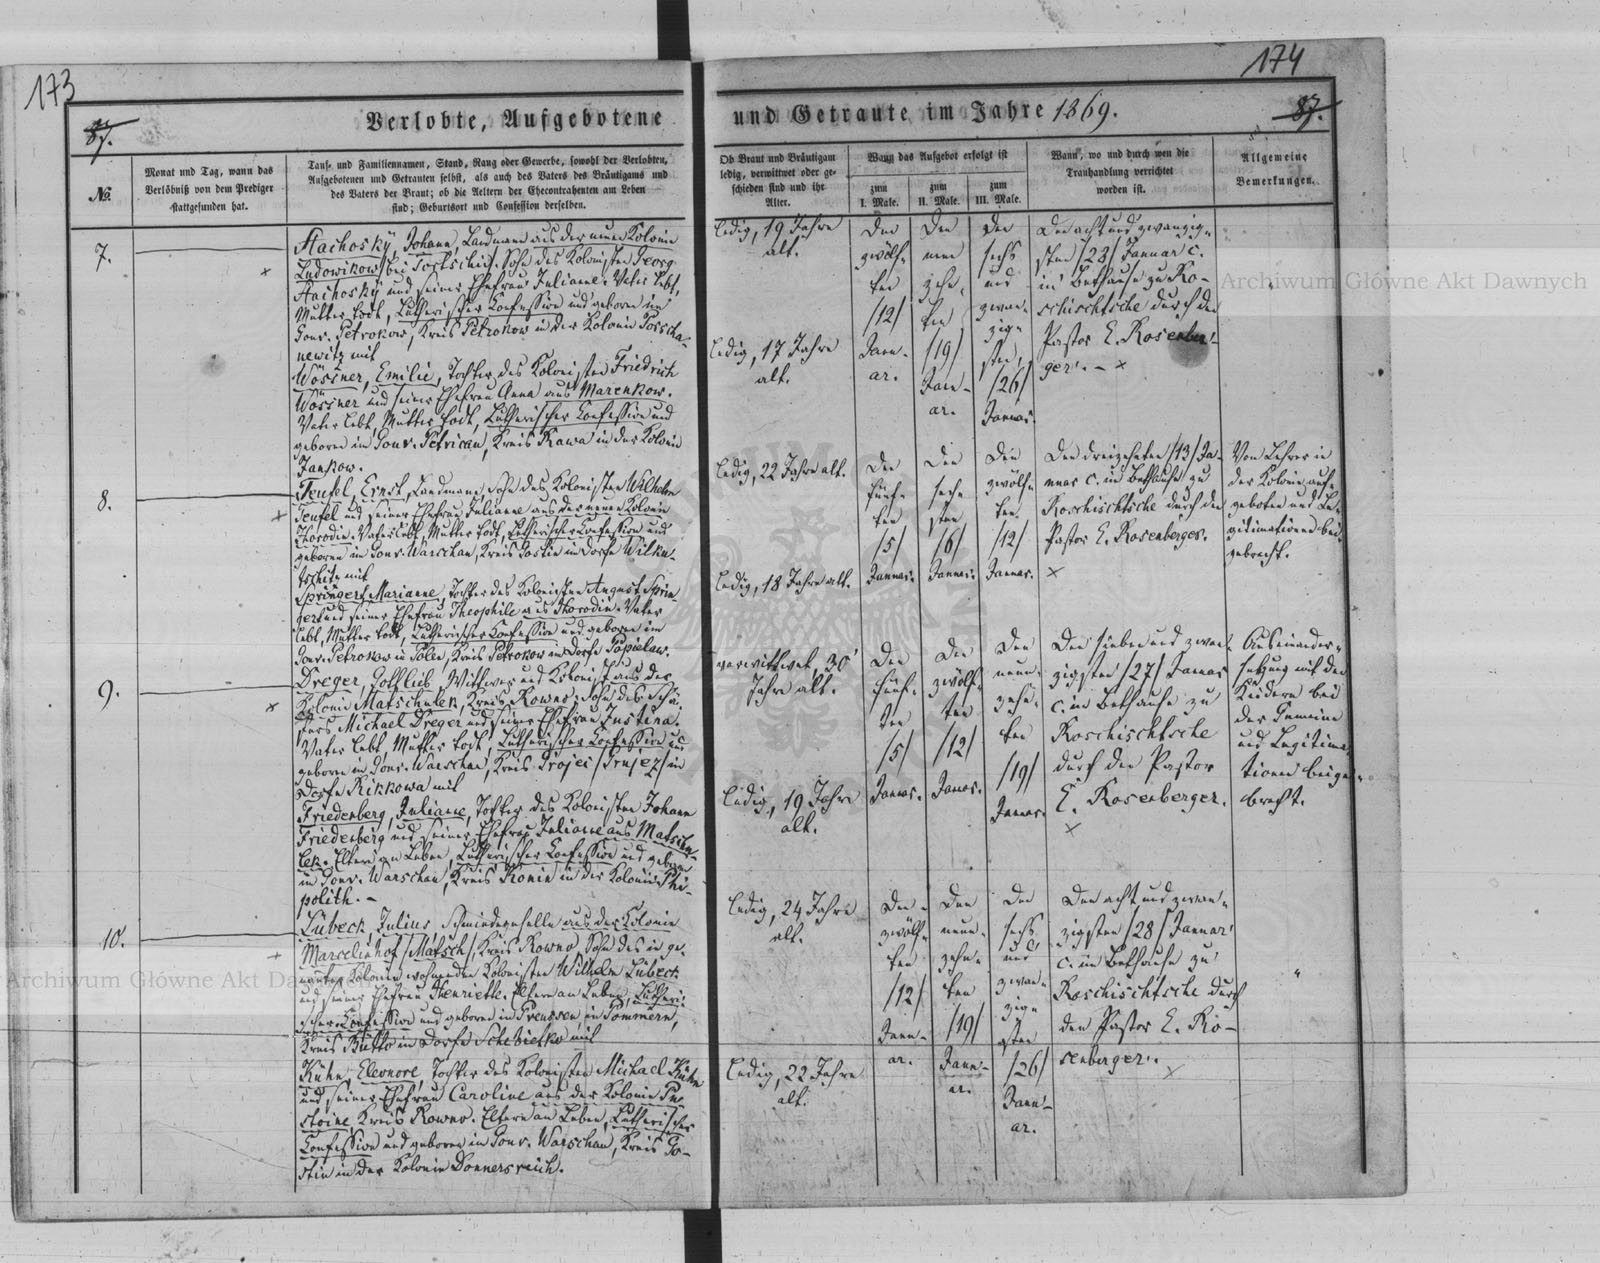 173
174
87.
Verlobte, Aufgebotene
und Getraute im Jahre 1869.
87.
№.
Monat und Tag, wann das
Verlöbniß von dem Prediger
stattgefunden hat.
Tauf- und Familiennamen, Stand, Rang oder Gewerbe, sowohl der Verlobten,
Aufgebotenen und Getrauten selbst, als auch des Vaters des Bräutigams und
des Vaters der Braut; ob die Aeltern der Ehecontrahenten am Leben
sind; Geburtsort und Confession derselben.
Ob Braut und Bräutigam
ledig, verwittwet oder ge-
schieden sind und ihr
Alter.
Wann das Aufgebot erfolgt ist
zum
I. Male.
zum
II. Male.
zum
III. Male.
Wann, wo und durch wen die
Trauhandlung verrichtet
worden ist.
Allgemeine
Bemerkungen.
7.
Johann, Landmann aus der neuen Kolonie
Ludwikow bei Sohn des Kolonisten Georg
und seiner Ehefrau Juliane. Vater lebt,
Mutter todt, Lutherischer Confession und geboren im
Gouv. Petrokow, Kreis Petrokow in der Kolonie
mit
Wössner, Emilie, Tochter des Kolonisten Friedrich
Wössner und seiner Ehefrau Anna aus Marenkow.
Vater lebt, Mutter todt, Lutherischer Confession und
geboren in Gouv. Petrican, Kreis Rawa in der Kolonie
Jankow.
ledig, 19 Jahre
alt.
ledig, 17 Jahre
alt.
Den
zwölf-
ten
/12/
Janu-
ar.
Den
neun
zehn-
ten
/19/
Janu-
ar.
Den
sechs
und
zwan-
zig-
sten
/26/
Januar.
Den acht und zwanzig-
sten /28/ Januar c.
im Bethause zu Ro-
schischtsche durch den
Pastor E. Rosenber-
ger. – x
8.
Teufel, Ernst, Landmann, Sohn des Kolonisten Wilhelm
Teufel und seiner Ehefrau Juliane aus der neuen Kolonie
Vater lebt, Mutter todt, Lutherischer Confession und
geboren in Gouv. Warschau, Kreis Gostin in Dorfe Wilku-
mit
Springer, Marianne, Tochter des Kolonisten August Sprin-
ger und seiner Ehefrau Theophile aus Vater
lebt, Mutter todt, Lutherischer Confession und geboren im
Gouv. Petrokow in Polen, Kreis Petrokow in Dorfe Popielaw.
ledig, 22 Jahre alt.
ledig, 18 Jahre alt.
Den
fünf-
ten
/5/
Januar.
Den
sech-
sten
/6/
Januar.
Den
zwölf-
ten
/12/
Januar.
Den dreizehnten /13/ Ja-
nuar c. im Bethause zu
Roschischtsche durch den
Pastor E. Rosenberger.
x
Von Lehrer in
der Kolonie auf-
geboten und Le-
gitimationen bei-
gebracht.
9.
Dreger, Gottlieb, Wittwer und Kolonist aus der
Kolonie Matschulek, Kreis Rowno, Sohn des Schä-
fers Michael Dreger und seiner Ehefrau Justina.
Vater lebt, Mutter todt, Lutherischer Confession und
geboren in Gouv. Warschau, Kreis in
Dorfe Rikkowa mit
Friedenberg, Juliane, Tochter des Kolonisten Johann
Friedenberg und seiner Ehefrau Juliane aus Matschu-
lek. Eltern am Leben, Lutherischer Confession und geboren
in Gouv. Warschau, Kreis Konin in der Kolonie Phi-
polith. –
verwittwet, 30
Jahre alt.
ledig, 19 Jahre
alt.
Den
fünf-
ten
/5/
Januar.
Den
zwölf-
ten
/12/
Januar.
Den
neun-
zehn-
ten
/19/
Januar.
Den sieben und zwan-
zigsten /27/ Januar
c. im Bethause zu
Roschischtsche
durch den Pastor
E. Rosenberger.
x
Auseinander-
setzung mit den
Kindern bei
der Gemeine
und Legitima-
tionen beige-
bracht.
10.
Lübeck, Julius Schmiedegeselle aus der Kolonie
Marcelinhof /Matsch/, Kreis Rowno, Sohn des in ge-
nannter Kolonie wohnenden Kolonisten Wilhelm Lübeck
und seiner Ehefrau Henriette. Eltern am Leben, Lutheri-
scher Confession und geboren in Preussen, in Pommern,
Kreis Bütto in Dorfe mit
Kühn, Eleonore, Tochter des Kolonisten Michael Kühn
und seiner Ehefrau Caroline aus der Kolonie Pu-
stoine Kreis Rowno. Eltern am Leben, Lutherischer
Confession und geboren in Gouv. Warschau, Kreis Go-
stin in der Kolonie Donnersreich.
ledig, 24 Jahre
alt.
ledig, 22 Jahre
alt.
Den
zwölf-
ten
/12/
Janu-
ar.
Den
neun-
zehn-
ten
/19/
Janu-
ar.
Den
sechs
und
zwan-
zig-
sten
/26/
Janu-
ar.
Den acht und zwan-
zigsten /28/ Januar
c. im Bethause zu
Roschischtsche durch
den Pastor E. Ro-
senberger.
x
"
Archiwum Główne Akt Dawnych
Archiwum Główne Akt Dawnych